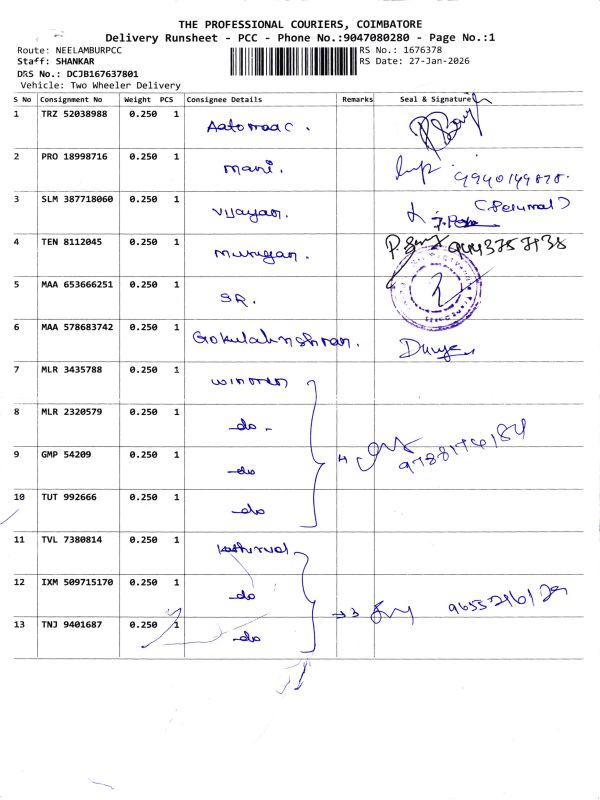 THE PROFESSIONAL COURIERS, COIMBATORE
Delivery Runsheet - PCC - Phone No.:9047080280 - Page No.:1
Route: NEELAMBURPCC RS No.: 1676378
Staff: SHANKAR RS Date: 27-Jan-2026
DRS No.: DCJB167637801
Vehicle: Two Wheeler Delivery
S No Consignment No Weight PCS Consignee Details Remarks Seal & Signature
1 TRZ 52038988 0.250 1 Aatomaac.
2 PRO 18998716 0.250 1 mani.
3 SLM 387718060 0.250 1 Vijayan. (Perumal)
4 TEN 8112045 0.250 1 murugan.
5 MAA 653666251 0.250 1 SR.
6 MAA 578683742 0.250 1
7 MLR 3435788 0.250 1
8 MLR 2320579 0.250 1 -do-
9 GMP 54209 0.250 1 -do
10 TUT 992666 0.250 1 -do
11 TVL 7380814 0.250 1
12 IXM 509715170 0.250 1 -do
13 TNJ 9401687 0.250 1 -do